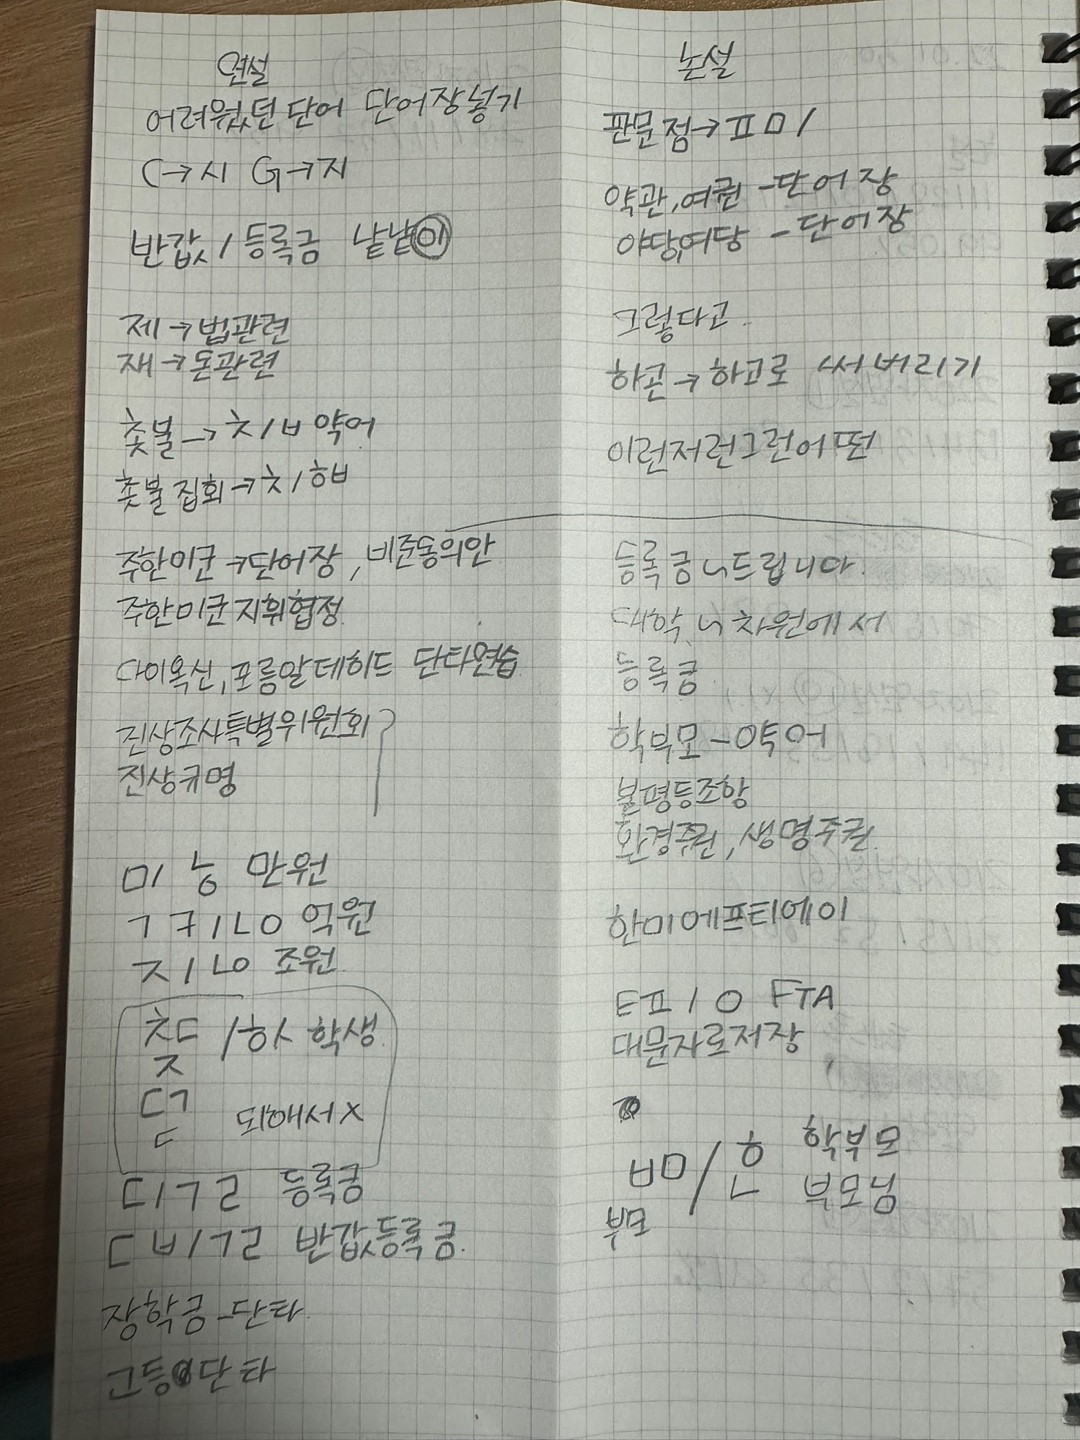 연설
어려웠던 단어 단어장넣기
C→시 G→지
반값/등록금 낱낱이
제→법관련
재→돈관련
촛불→ㅊ/ㅂ약어
촛불집회→ㅊ/ㅎㅂ
주한미군→단어장, 비준동의안
주한미군지휘협정
다이옥신,포름알데히드 단타연습
진상조사특별위원회
진상규명
ㅁㅣ ㄶ 만원
ㄱㅋ/ㄴㅇ 억원
ㅈ/ㄴㅇ 조원
ㅊㄷ /ㅎㅅ 학생
ㅈ
ㄷㄱ 되애서X
ㄷ
ㄷ/ㄱㄹ 등록금
ㄷㅂ/ㄱㄹ 반값등록금.
장학금-단타
고등 단타
논설
판문점→ㅍㅁ/
약관,여권-단어장
야당,여당-단어장
그렇다고.
하곤→하고로 써버리기
이런저런그런어떤
등록금ㄴ드립니다.
대학ㄴ차원에서
등록금
학부모-약어
불평등조항
환경주권,생명주권
한미에프티에이
ㅌㅍ/ㅇ FTA
대문자로저장
ㅂㅁ/ㅎ 학부모
ㄴ 부모님
부모